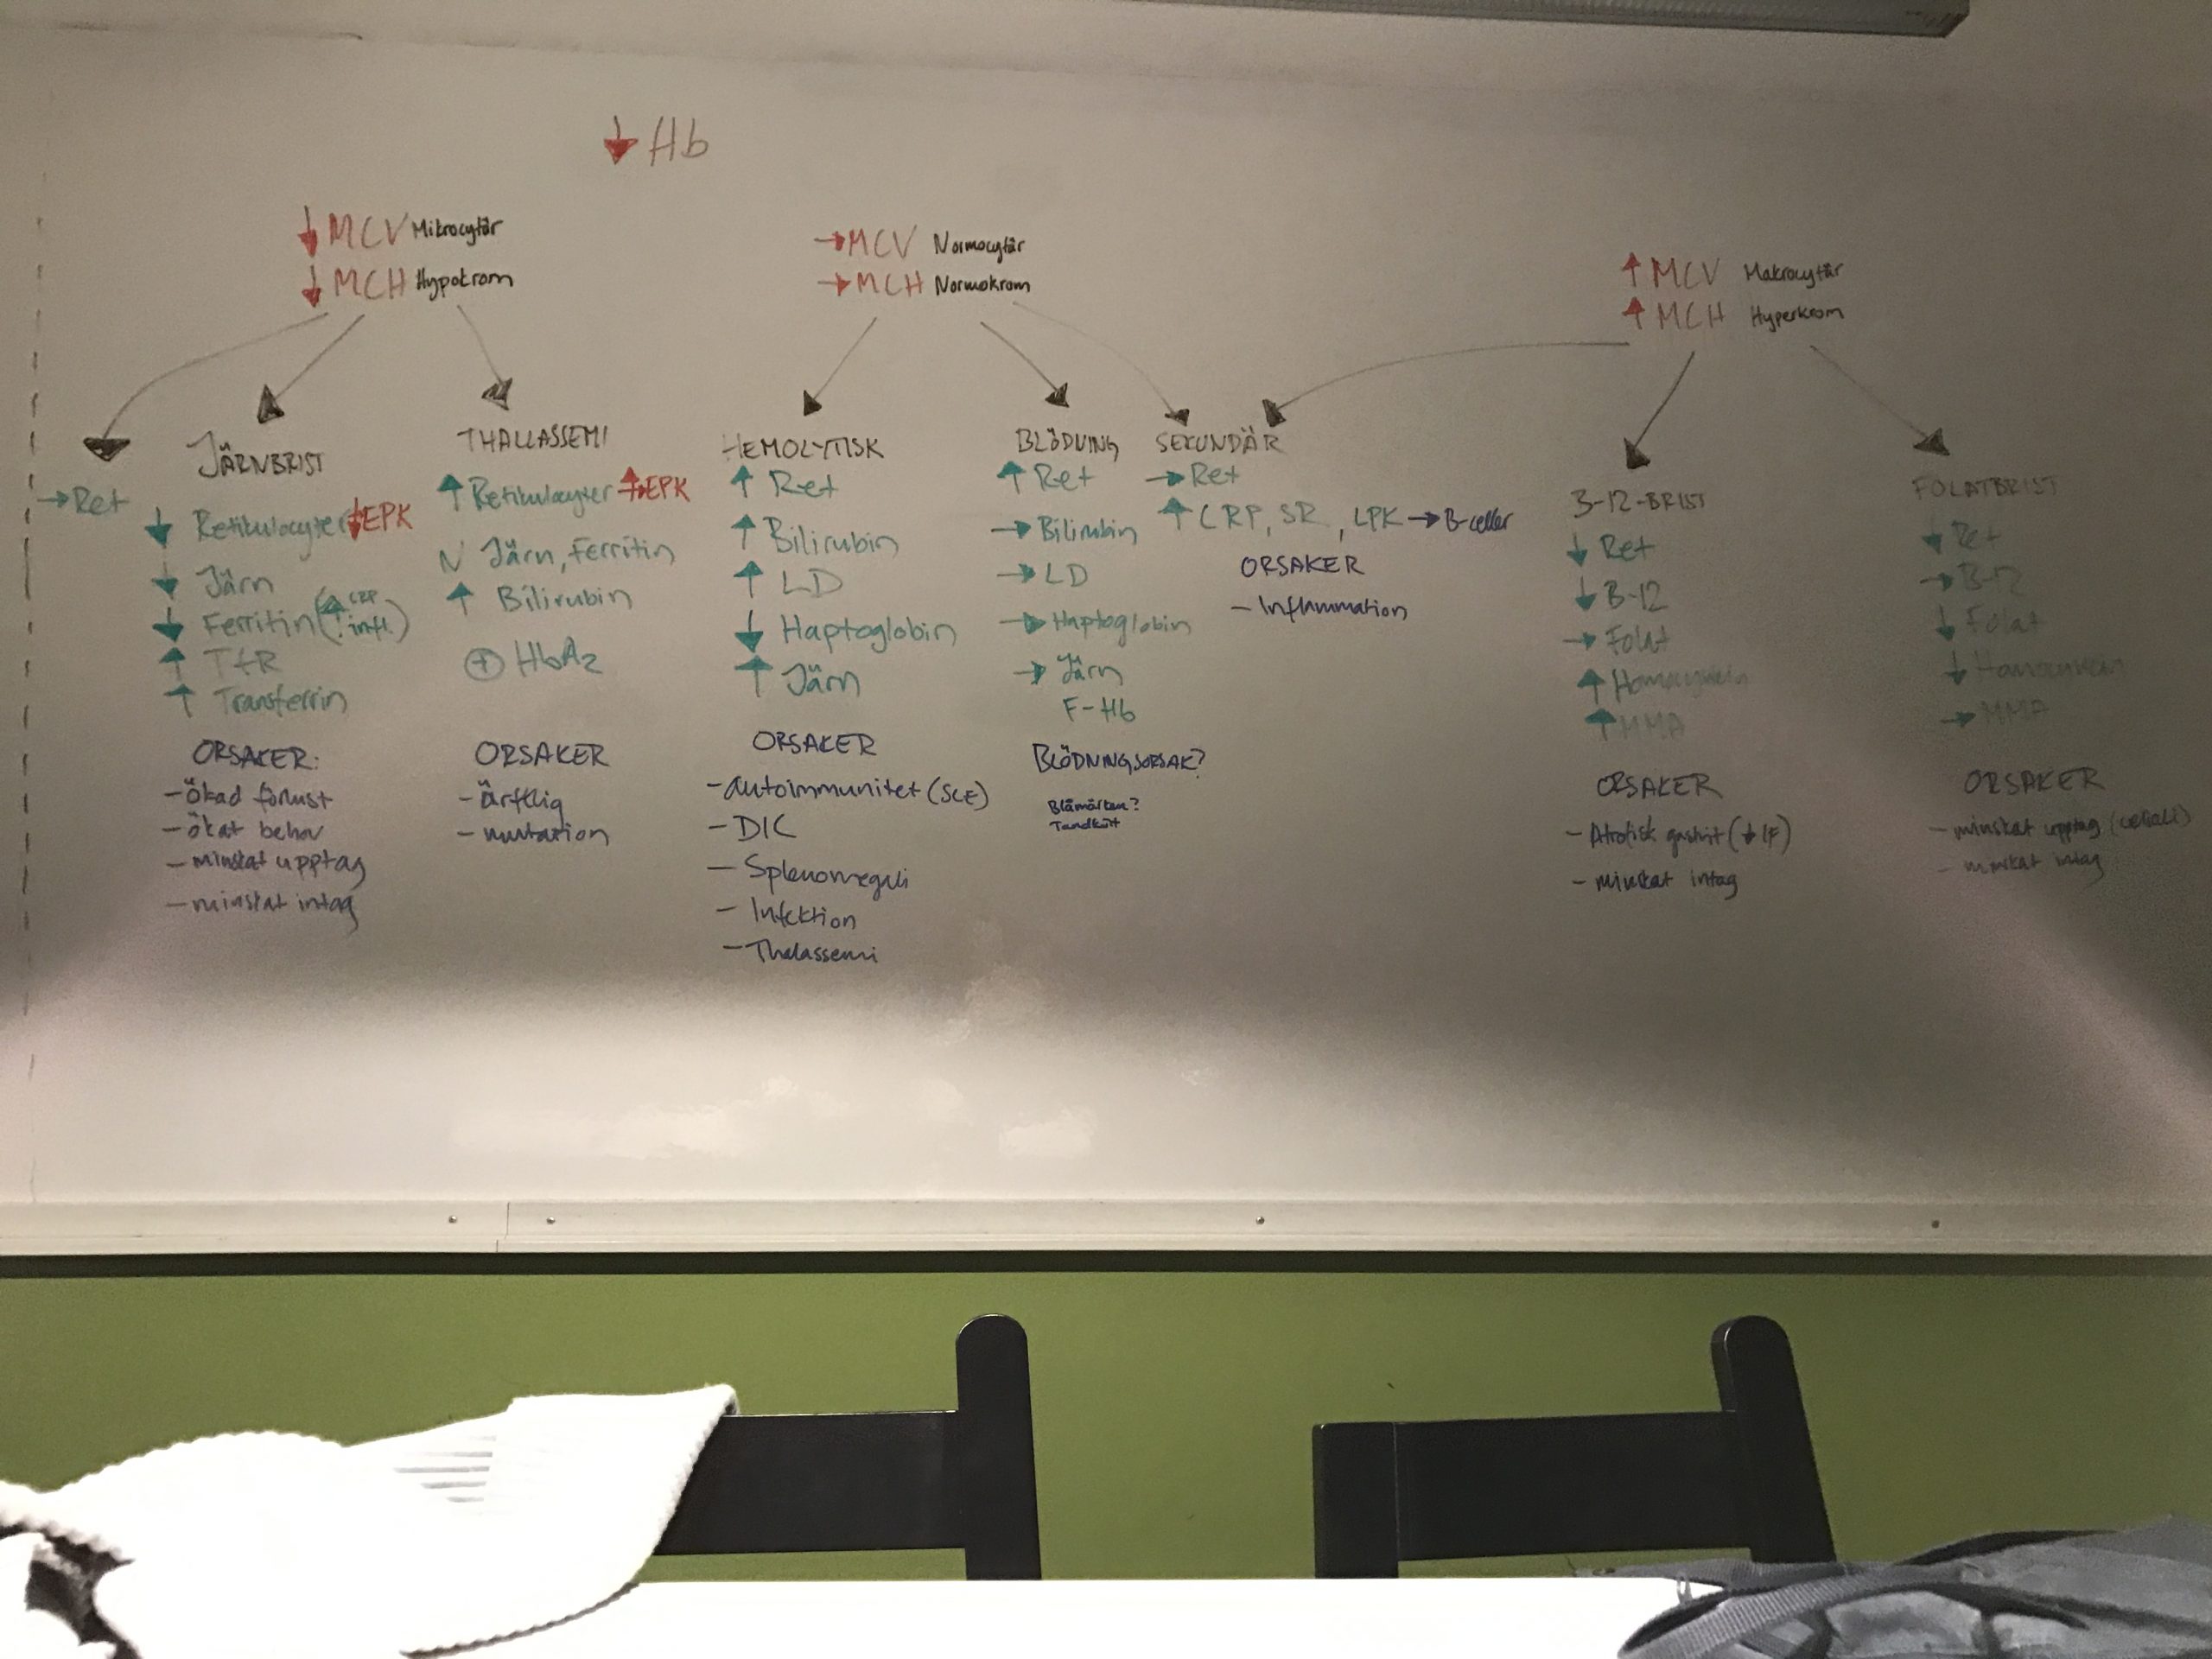 ↓ Hb
↓ MCV Mikrocytär
↓ MCH Hypokrom
→ MCV Normocytär
→ MCH Normokrom
↑ MCV Makrocytär
↑ MCH Hyperkrom
→ Ret
JÄRNBRIST
↓ Retikulocyter ↓ EPK
↓ Järn
↓ Ferritin (↑ CRP infl.)
↑ TfR
↑ Transferrin
ORSAKER:
- ökad förlust
- ökat behov
- minskat upptag
- minskat intag
THALLASSEMI
↑ Retikulocyter ↑→ EPK
N Järn, Ferritin
↑ Bilirubin
⊕ HbA2
ORSAKER
- ärftlig
- mutation
HEMOLYTISK
↑ Ret
↑ Bilirubin
↑ LD
↓ Haptoglobin
↑ Järn
ORSAKER
- autoimmunitet (SLE)
- DIC
- Splenomegali
- Infektion
- Thalassemi
BLÖDNING
↑ Ret
→ Bilirubin
→ LD
→ Haptoglobin
→ Järn
F-Hb
BLÖDNINGSORSAK?
Blåmärken?
Tandkött
SEKUNDÄR
→ Ret
↑ CRP, SR, LPK → B-celler
ORSAKER
- Inflammation
B-12-BRIST
↓ Ret
↓ B-12
→ Folat
↑ Homocystein
↑ MMA
ORSAKER
- Atrofisk gastrit (↓ IF)
- minskat intag
FOLATBRIST
↓ Ret
→ B-12
↓ Folat
↓ Homocystein
→ MMA
ORSAKER
- minskat upptag (celiaki)
- minskat intag